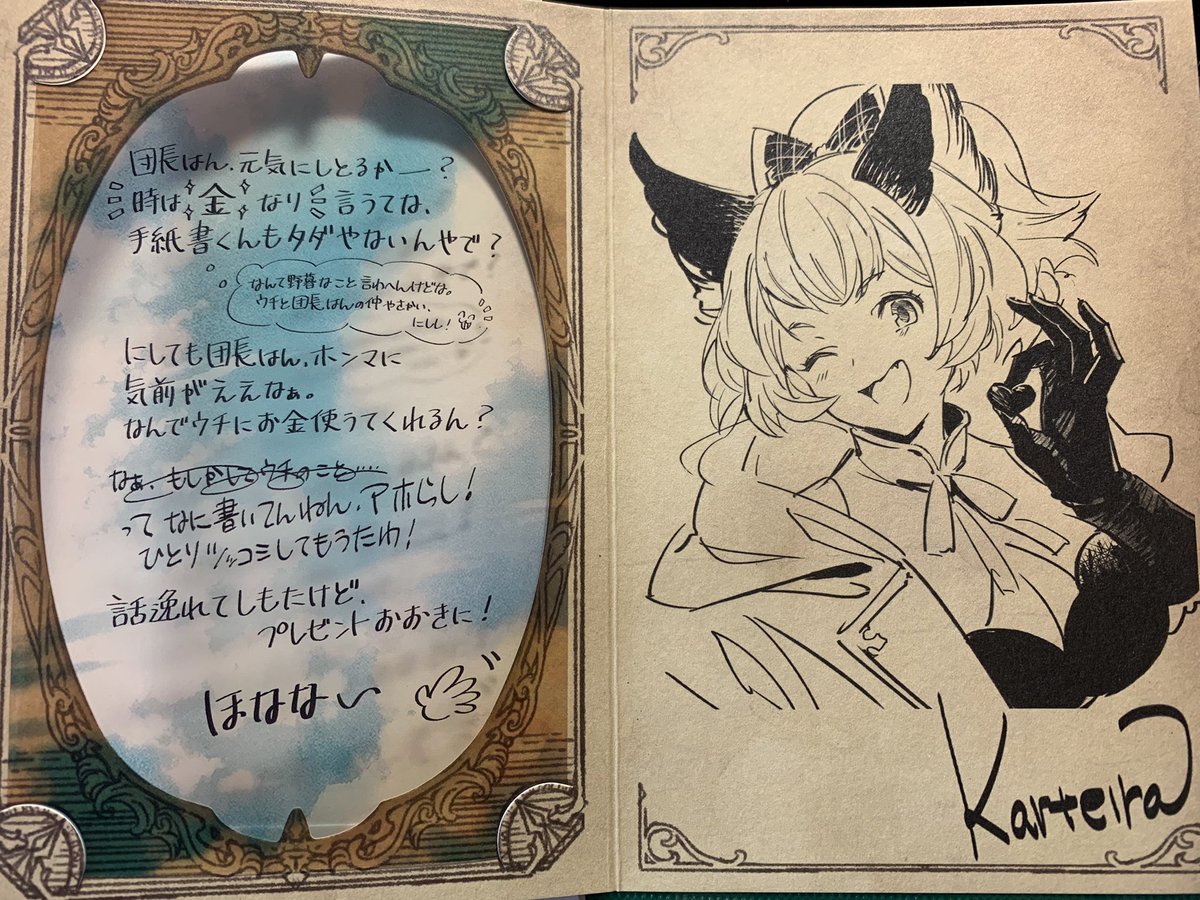 団長はん、元気にしとるかー?
時は金なり言うてな、
手紙書くんもタダやないんやで?
なんて野暮なこと言わへんけどな。
ウチと団長はんの仲やさかい、
にしし!
にしても団長はん、ホンマに
気前がええなぁ。
なんでウチにお金使うてくれるん?
なぁ、もしかしてウチのこと…‥
って なに書いてんねん、アホらし!
ひとりツッコミしてもうたわ!
話逸れてしもたけど、
プレゼントおおきに!
ほなない
Karteira